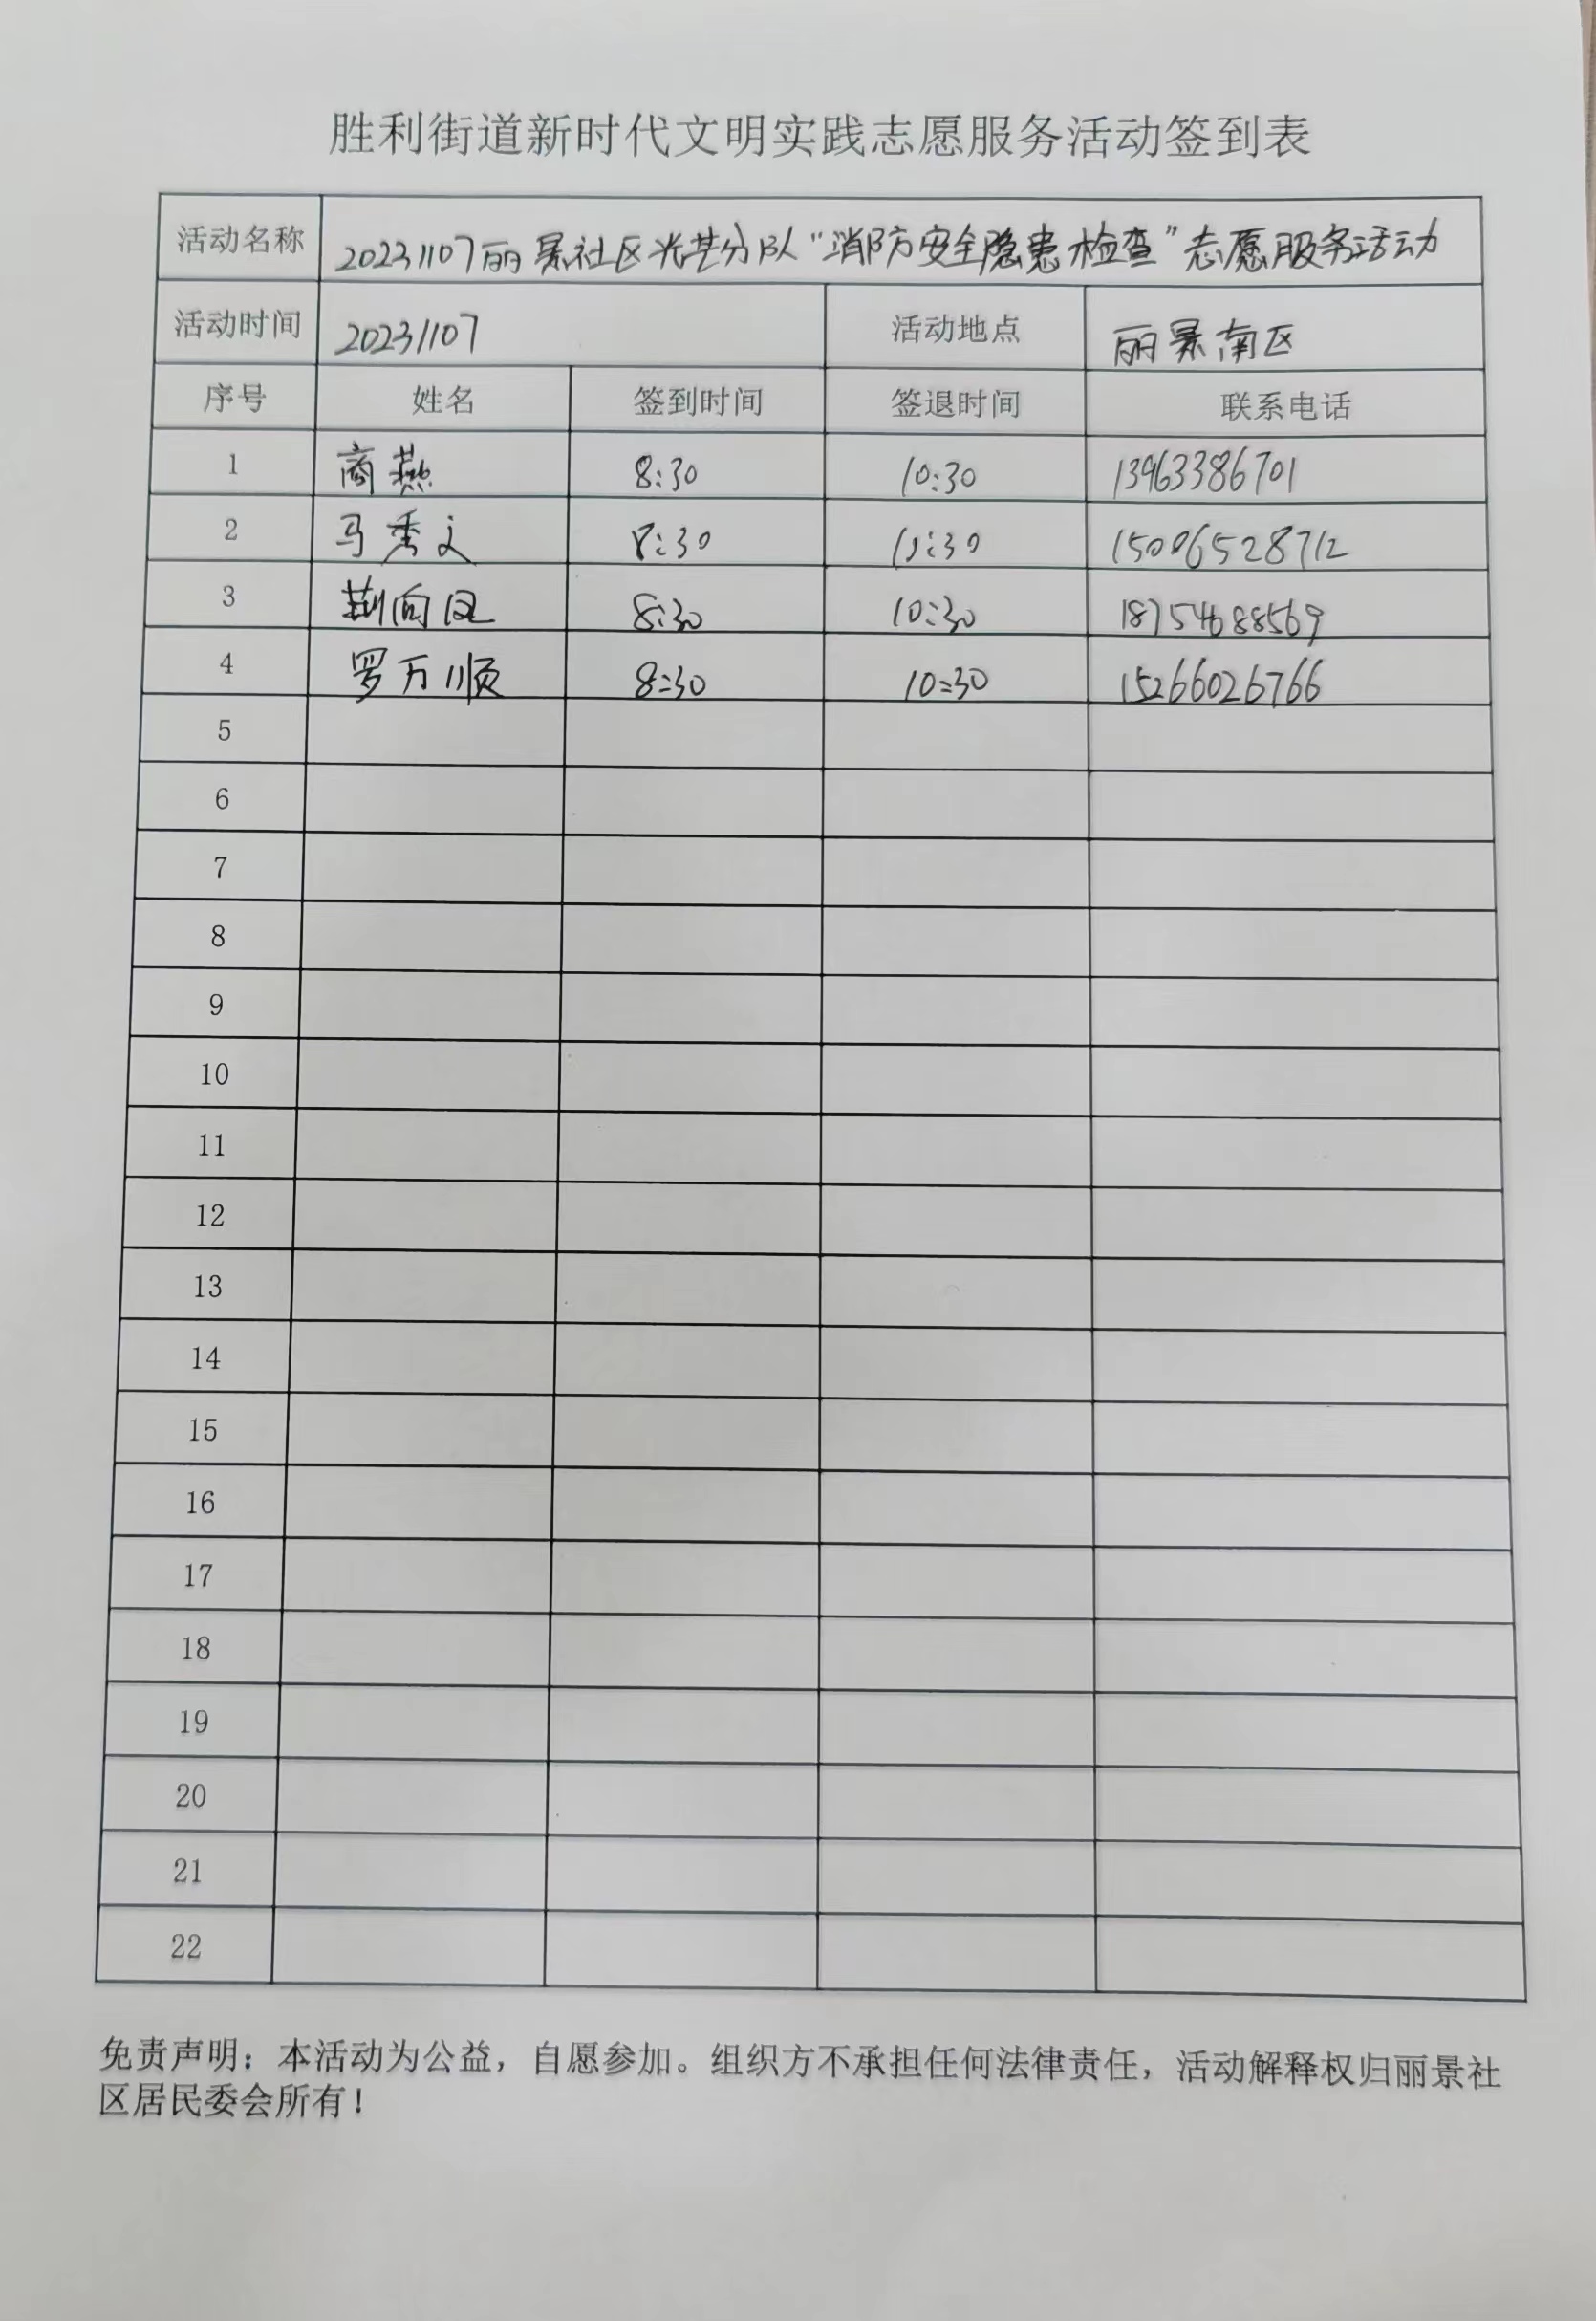 胜利街道新时代文明实践志愿服务活动签到表
活动名称 20231107丽景社区光芒分队“消防安全隐患检查”志愿服务活动
活动时间 20231107 活动地点 丽景南区
序号 姓名 签到时间 签退时间 联系电话
1 商燕 8:30 10:30 13963386701
2 马秀文 8:30 10:30 15006528712
3 荆向民 8:30 10:30 18754688569
4 罗万顺 8:30 10:30 15266026766
5
6
7
8
9
10
11
12
13
14
15
16
17
18
19
20
21
22
免责声明：本活动为公益，自愿参加。组织方不承担任何法律责任，活动解释权归丽景社
区居民委会所有！